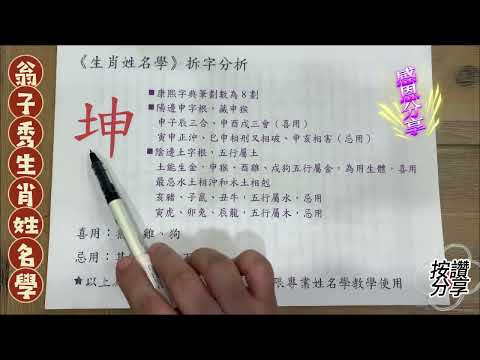 翁子秀生肖姓名學
《生肖姓名學》拆字分析
感恩分享
坤
■康熙字典筆劃數為8劃
■陽邊申字根，藏申猴
申子辰三合、申酉戌三會（喜用）
寅申正沖、巳申相刑又相破、申亥相害（忌用）
■陰邊土字根，五行屬土
土能生金，申猴、酉雞、戌狗五行屬金，為用生體，喜用
最忌水土相沖和木土相剋
亥豬、子鼠、丑牛，五行屬水，忌用
寅虎、卯兔、辰龍，五行屬木，忌用
喜用：雞、狗
忌用：其
★以上
專業姓名學教學使用
按讚
分享